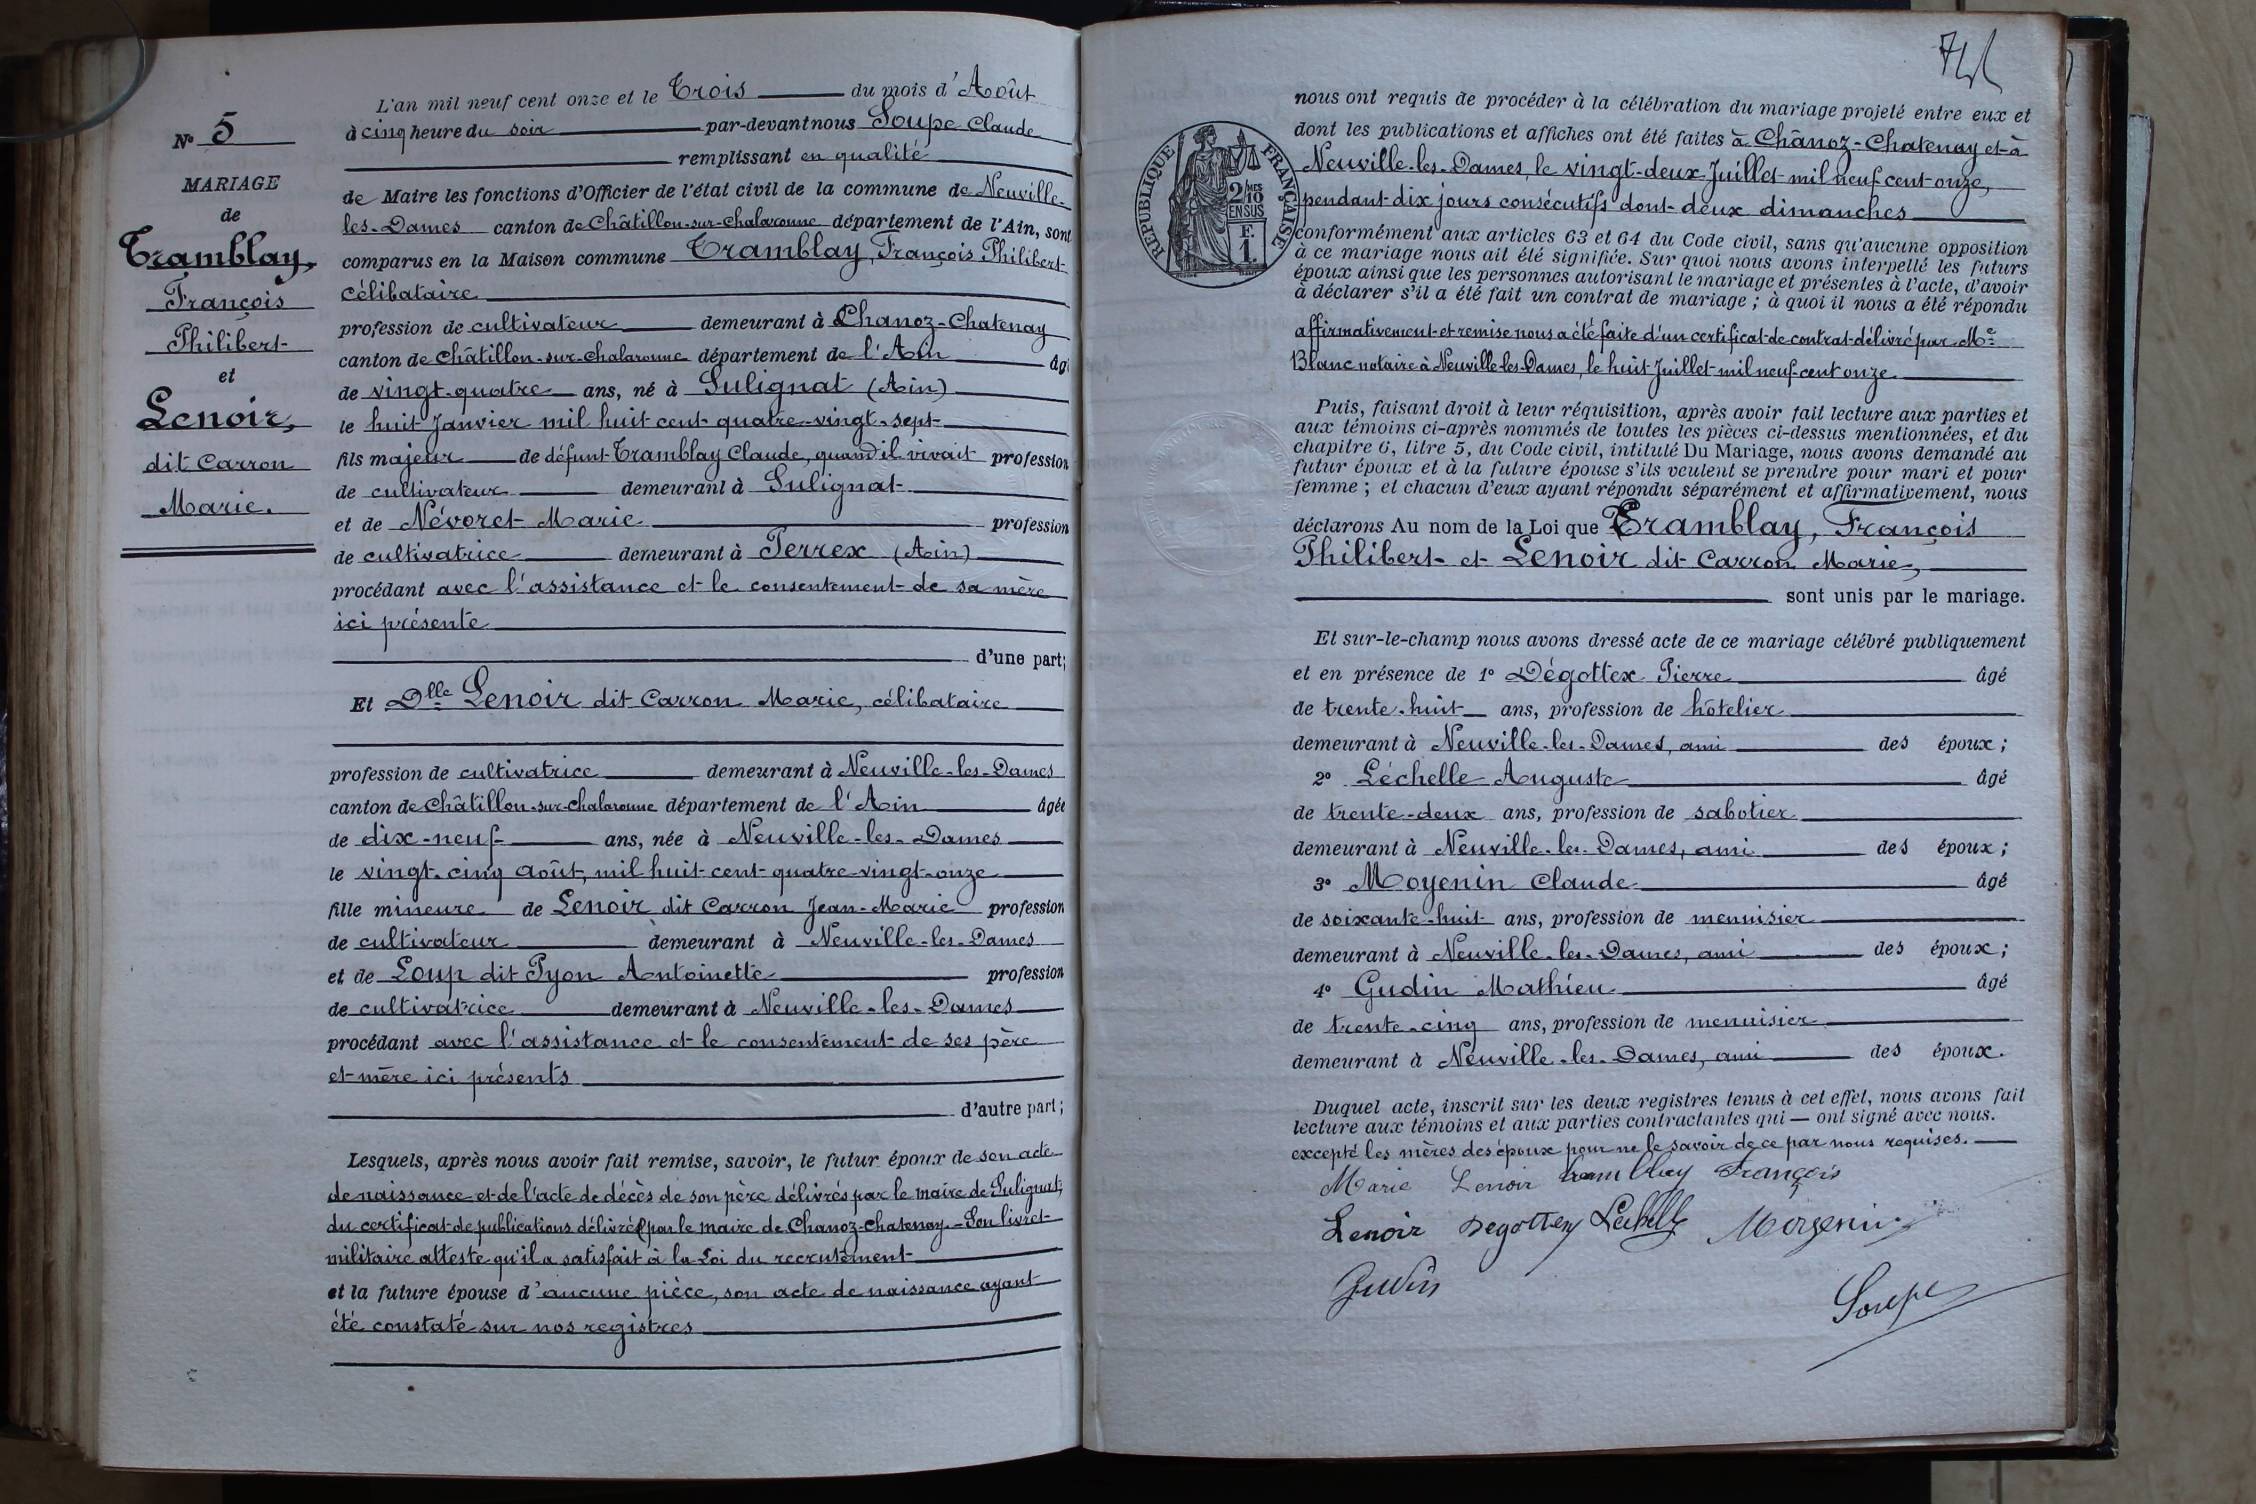 N° 5
MARIAGE
de
Tramblay,
François
Philibert
et
Lenoir,
dit Carron
Marie.
L'an mil neuf cent onze et le Trois du mois d'Août
à cinq heure du soir par-devant nous Soupe Claude
remplissant en qualité
de Maire les fonctions d'Officier de l'état civil de la commune de Neuville-
les-Dames canton de Châtillon-sur-Chalaronne département de l'Ain, sont
comparus en la Maison commune Tramblay, François Philibert
célibataire
profession de cultivateur demeurant à Chanoz-Chatenay
canton de Châtillon-sur-Chalaronne département de l'Ain âgé
de vingt-quatre ans, né à Sulignat (Ain)
le huit Janvier mil huit cent quatre-vingt-sept
fils majeur de défunt Tramblay Claude, quand il vivait profession
de cultivateur demeurant à Sulignat
et de Névoret Marie profession
de cultivatrice demeurant à Perrex (Ain)
procédant avec l'assistance et le consentement de sa mère
ici présente
d'une part;
Et Dlle Lenoir dit Carron Marie, célibataire
profession de cultivatrice demeurant à Neuville-les-Dames
canton de Châtillon-sur-Chalaronne département de l'Ain âgée
de dix-neuf ans, née à Neuville-les-Dames
le vingt-cinq août, mil huit cent quatre-vingt-onze
fille mineure de Lenoir dit Carron Jean-Marie profession
de cultivateur demeurant à Neuville-les-Dames
et de Loup dit Pyon Antoinette profession
de cultivatrice demeurant à Neuville-les-Dames
procédant avec l'assistance et le consentement de ses père
et mère ici présents
d'autre part;
Lesquels, après nous avoir fait remise, savoir, le futur époux de son acte
de naissance et de l'acte de décès de son père délivrés par le maire de Sulignat;
du certificat de publications délivré par le maire de Chanoz-Chatenay. Son livret
militaire atteste qu'il a satisfait à la Loi du recrutement
et la future épouse d'aucune pièce, son acte de naissance ayant
été constaté sur nos registres
RÉPUBLIQUE FRANÇAISE
2/10 MES
EN SUS
F.
1.
nous ont requis de procéder à la célébration du mariage projeté entre eux et
dont les publications et affiches ont été faites à Chânoz-Chatenay et à
Neuville-les-Dames, le vingt-deux Juillet mil neuf cent onze,
pendant dix jours consécutifs dont deux dimanches
conformément aux articles 63 et 64 du Code civil, sans qu'aucune opposition
à ce mariage nous ait été signifiée. Sur quoi nous avons interpellé les futurs
époux ainsi que les personnes autorisant le mariage et présentes à l'acte, d'avoir
à déclarer s'il a été fait un contrat de mariage; à quoi il nous a été répondu
affirmativement et remise nous a été faite d'un certificat de contrat délivré par Me
Blanc notaire à Neuville-les-Dames, le huit Juillet mil neuf cent onze.
Puis, faisant droit à leur réquisition, après avoir fait lecture aux parties et
aux témoins ci-après nommés de toutes les pièces ci-dessus mentionnées, et du
chapitre 6, titre 5, du Code civil, intitulé Du Mariage, nous avons demandé au
futur époux et à la future épouse s'ils veulent se prendre pour mari et pour
femme; et chacun d'eux ayant répondu séparément et affirmativement, nous
déclarons Au nom de la Loi que Tramblay, François
Philibert et Lenoir dit Carron Marie,
sont unis par le mariage.
Et sur-le-champ nous avons dressé acte de ce mariage célébré publiquement
et en présence de 1° Dégottex Pierre âgé
de trente-huit ans, profession de hôtelier
demeurant à Neuville-les-Dames, ami des époux;
2° Léchelle Auguste âgé
de trente-deux ans, profession de sabotier
demeurant à Neuville-les-Dames, ami des époux;
3° Moyenin Claude âgé
de soixante-huit ans, profession de menuisier
demeurant à Neuville-les-Dames, ami des époux;
4° Gudin Mathieu âgé
de trente-cinq ans, profession de menuisier
demeurant à Neuville-les-Dames, ami des époux.
Duquel acte, inscrit sur les deux registres tenus à cet effet, nous avons fait
lecture aux témoins et aux parties contractantes qui ont signé avec nous.
excepté les mères des époux pour ne le savoir de ce par nous requises.
Marie Lenoir Tramblay François
Lenoir Degottex Léchelle Moyenin
Gudin
Soupe